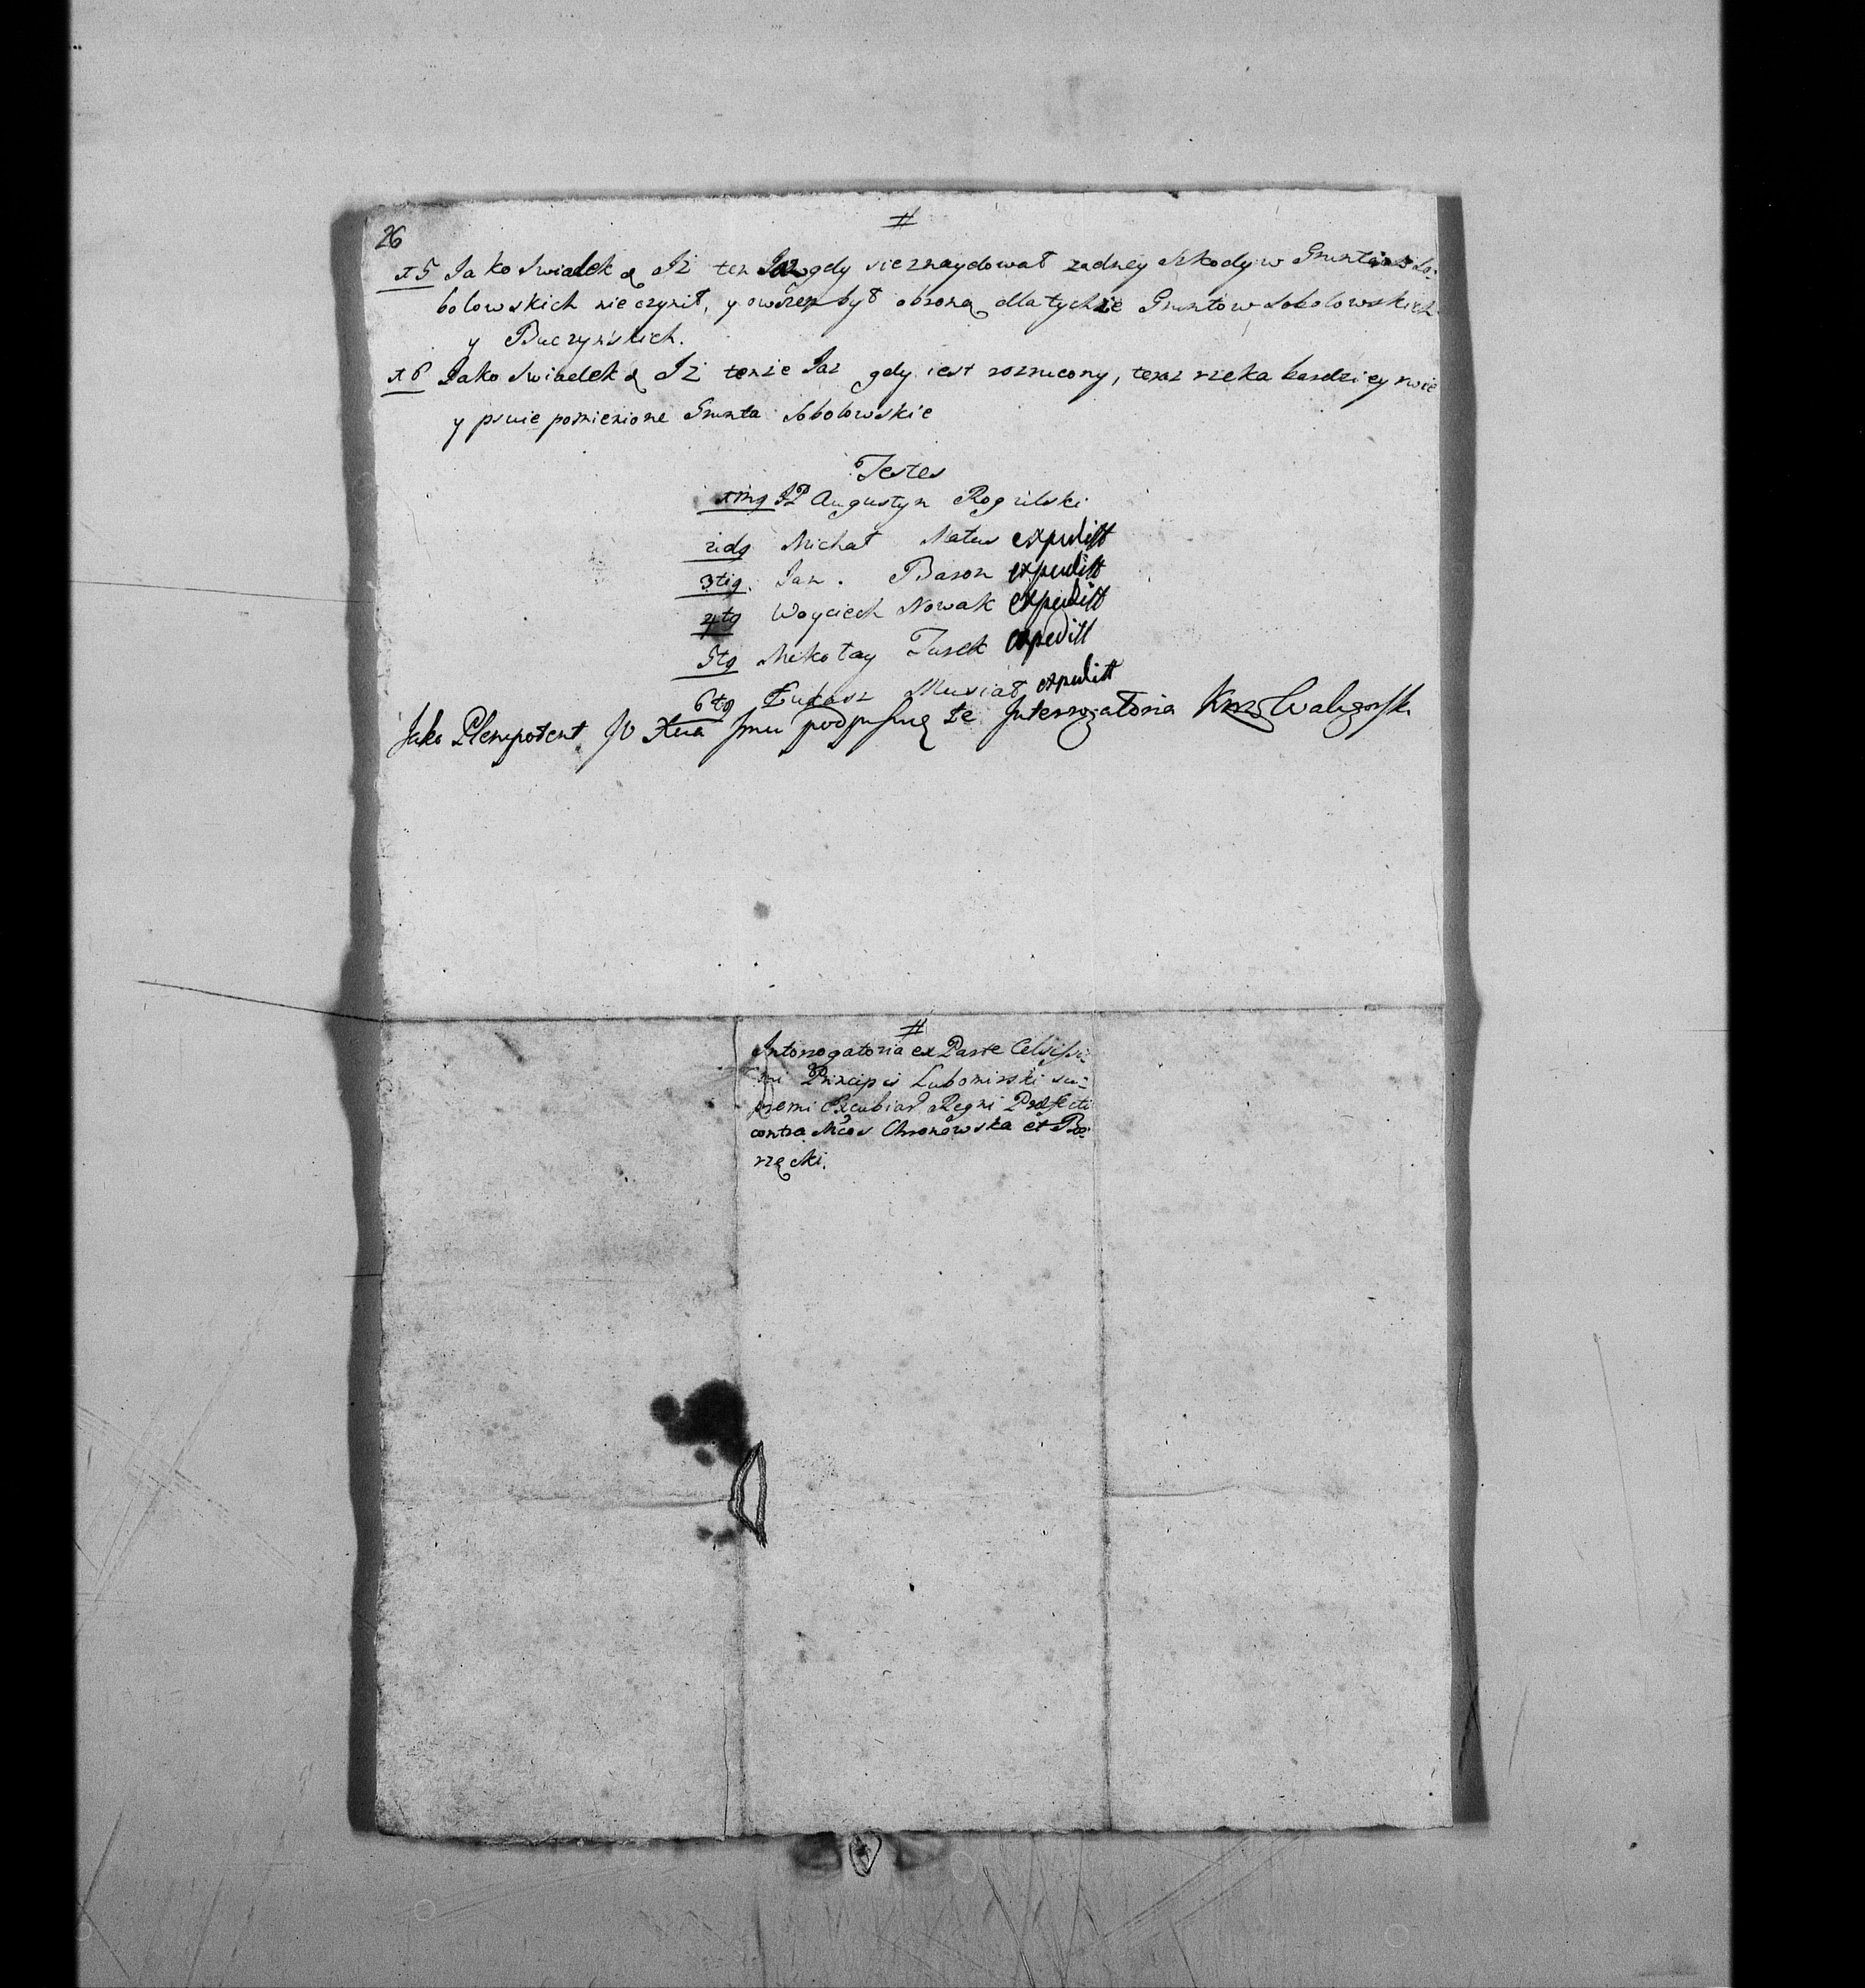 #
26
x 5 Jako Swiadek & Jż ten Jaz gdy sie znaydował zadney Szkody w Gruntach So-
bolowskich nie czynił, y owszem był obroną dla tychże Gruntow Sobolowskich
y Buczyńskich.
x 6 Jako Swiadek & Jż tenże Jaz gdy iest rozrucony, teraz rzeka bardziey rwie
y psuie pomienione Grunta Sobolowskie
Testes
JP Augustyn Rogulski
2dg Michał Matus expeditt
3tig. Jan. Baron expeditt
4tg Woyciech Nowak expeditt
5tg Mikołay Turek expeditt
6tg Łukasz Musiał expeditt
Jako Plenipotent JO Xcia Jmci podpisuię te Interrogatoria
#
Interrogatoria ex Parte Celsissi-
mi Principis Lubomirski su-
premi Excubiar Regni Praefecti
contra Mcos Chronowska et Bo-
rzęcki.